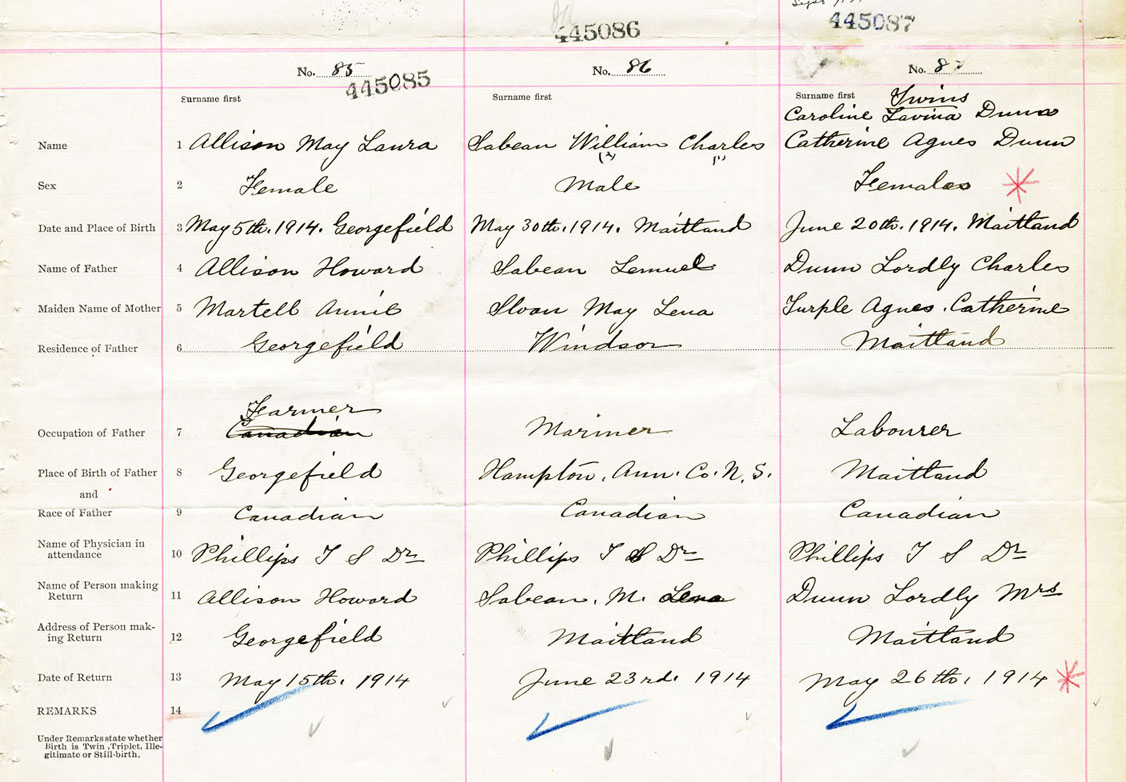 445086
445087
No. 85
445085
No. 86
No. 87
Surname first
Surname first
Surname first Twins
Caroline Lavina Dunn
Name 1 Allison May Laura Sabean William Charles Catherine Agnes Dunn
(2) (1)
Sex 2 Female Male Females *
Date and Place of Birth 3 May 5th. 1914. Georgefield May 30th. 1914. Maitland June 20th. 1914. Maitland
Name of Father 4 Allison Howard Sabean Lemuel Dunn Lordly Charles
Maiden Name of Mother 5 Martell Annie Sloan May Lena Turple Agnes. Catherine
Residence of Father 6 Georgefield Windsor Maitland
Farmer
Occupation of Father 7 Canadian Mariner Labourer
Place of Birth of Father 8 Georgefield Hampton, Ann. Co. N. S. Maitland
and
Race of Father 9 Canadian Canadian Canadian
Name of Physician in
attendance 10 Phillips T S Dr Phillips T S Dr Phillips T S Dr
Name of Person making
Return 11 Allison Howard Sabean. M. Lena Dunn Lordly Mrs
Address of Person mak-
ing Return 12 Georgefield Maitland Maitland
Date of Return 13 May 15th. 1914 June 23rd. 1914 May 26th. 1914 *
REMARKS 14
Under Remarks state whether
Birth is Twin, Triplet, Ille-
gitimate or Still-birth.